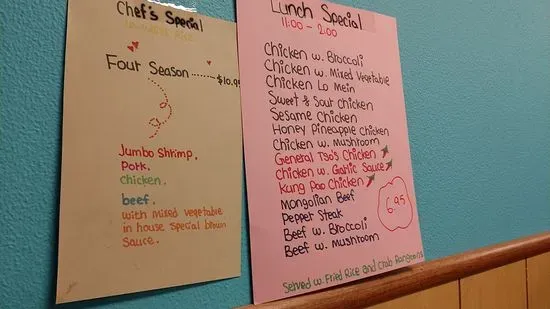 Chef's Special
Four Season ........... $10.95
Jumbo Shrimp.
Pork.
chicken.
beef.
with mixed vegetable
in house special brown
sauce.
Lunch Special
11:00 - 2:00
Chicken w. Broccoli
Chicken w. Mixed Vegetable
Chicken Lo Mein
Sweet & Sour Chicken
Sesame Chicken
Honey Pineapple Chicken
Chicken w. Mushroom
General Tso's Chicken
Chicken w. Garlic Sauce
Kung Pao Chicken
Mongolian Beef
Pepper Steak
Beef w. Broccoli
Beef w. Mushroom
6.95
Served w. Fried Rice and Crab Rangoons